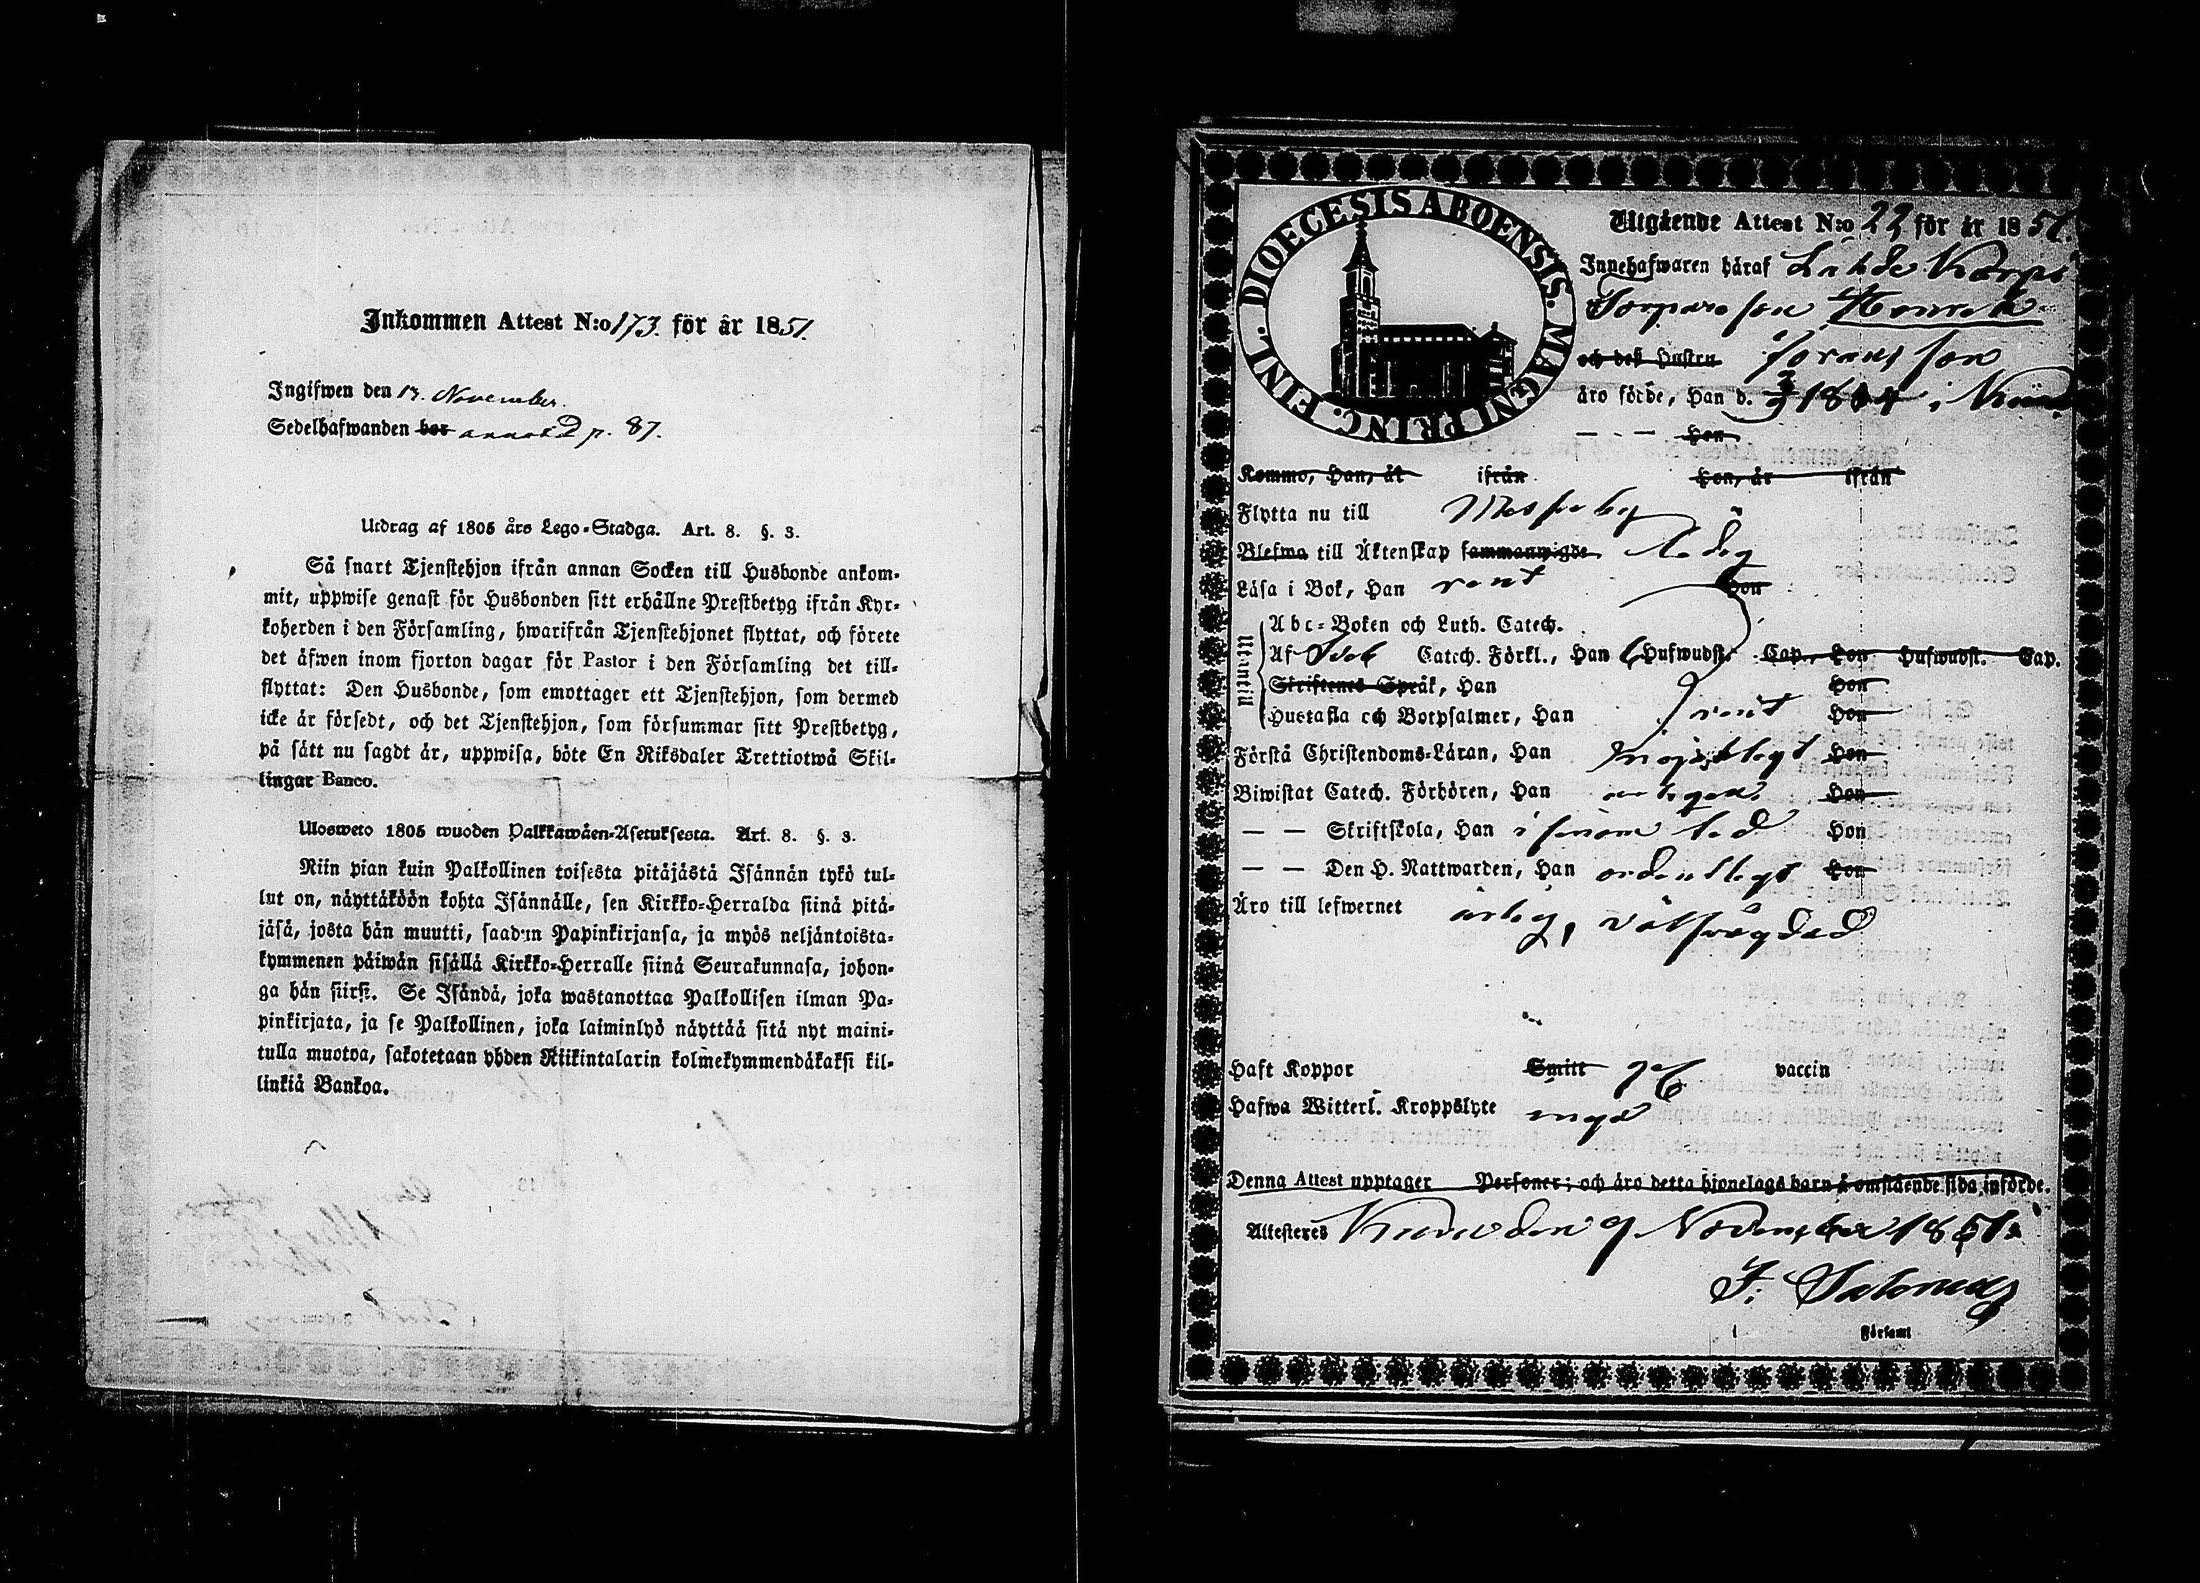 Inkommen Attest N:o 173 för år 1851.
Ingifwen den 13. November.
Sedelhafwanden bor annot. D p. 87.
Utdrag af 1805 års Lego-Stadga. Art. 8. §. 3.
Så snart Tjenstehjon ifrån annan Socken till Husbonde ankom-
mit, uppwise genast för Husbonden sitt erhållne Prestbetyg ifrån Kyr-
koherden i den Församling, hwarifrån Tjenstehjonet flyttat, och förete
det äfwen inom fjorton dagar för Pastor i den Församling det till-
flyttat: Den Husbonde, som emottager ett Tjenstehjon, som dermed
icke är försedt, och det Tjenstehjon, som försummar sitt Prestbetyg,
på sätt nu sagdt är, uppwisa, böte En Riksdaler Trettiotwå Skil-
lingar Banco.
Ulosweto 1805 wuoden Palkkawäen-Asetuksesta. Art. 8. §. 3.
Niin pian kuin Palkollinen toisesta pitäjästä Isännän tykö tul-
lut on, näyttäköön kohta Isännälle, sen Kirkko-Herralda siinä pitä-
jäsä, josta hän muutti, saadun Papinkirjansa, ja myös neljäntoista-
kymmenen päiwän sisällä Kirkko-Herralle siinä Seurakunnasa, johon-
ga hän siirsi. Se Isändä, joka wastanottaa Palkollisen ilman Pa-
pinkirjata, ja se Palkollinen, joka laiminlyö näyttää sitä nyt maini-
tulla muotoa, sakotetaan yhden Riikintalarin kolmekymmendäkaksi kil-
linkiä Bankoa.
DIOECESIS ABOENSIS. MAGNI PRINC. FINL.
Utgående Attest N:o 22 för år 1851.
Innehafwaren häraf Lähde Karpi
Torpare son Henrik
och deß Hustru son
äro födde, Han d. 1804 i
— — Hon
Kommo, Han, år ifrån Hon, år ifrån
Flytta nu till Messuby
Blefwo till Äktenskap sammanwigde ledig
Läsa i Bok, Han rent Hon
Utantill
Abc-Boken och Luth. Catech.
Af Catech. Förkl., Han 6 Hufwudst. Cap., Hon Hufwudst. Cap.
Skriftenes Språk, Han Hon
Hustafla och Botpsalmer, Han rent Hon
Förstå Christendoms-Läran, Han Hon
Biwistat Catech. Förhören, Han Hon
— — Skriftskola, Han i sinom tid Hon
— — Den H. Nattwarden, Han ordentligt Hon
Äro till lefwernet ärlig, välfrägdad
Haft Koppor Smitt vaccin
Hafwa Witterl. Kroppslyte inga
Denna Attest upptager Personer; och äro detta hjonelags barn å omstående sida införde.
Attesteres den 9 November 1851.
F:
i Församl